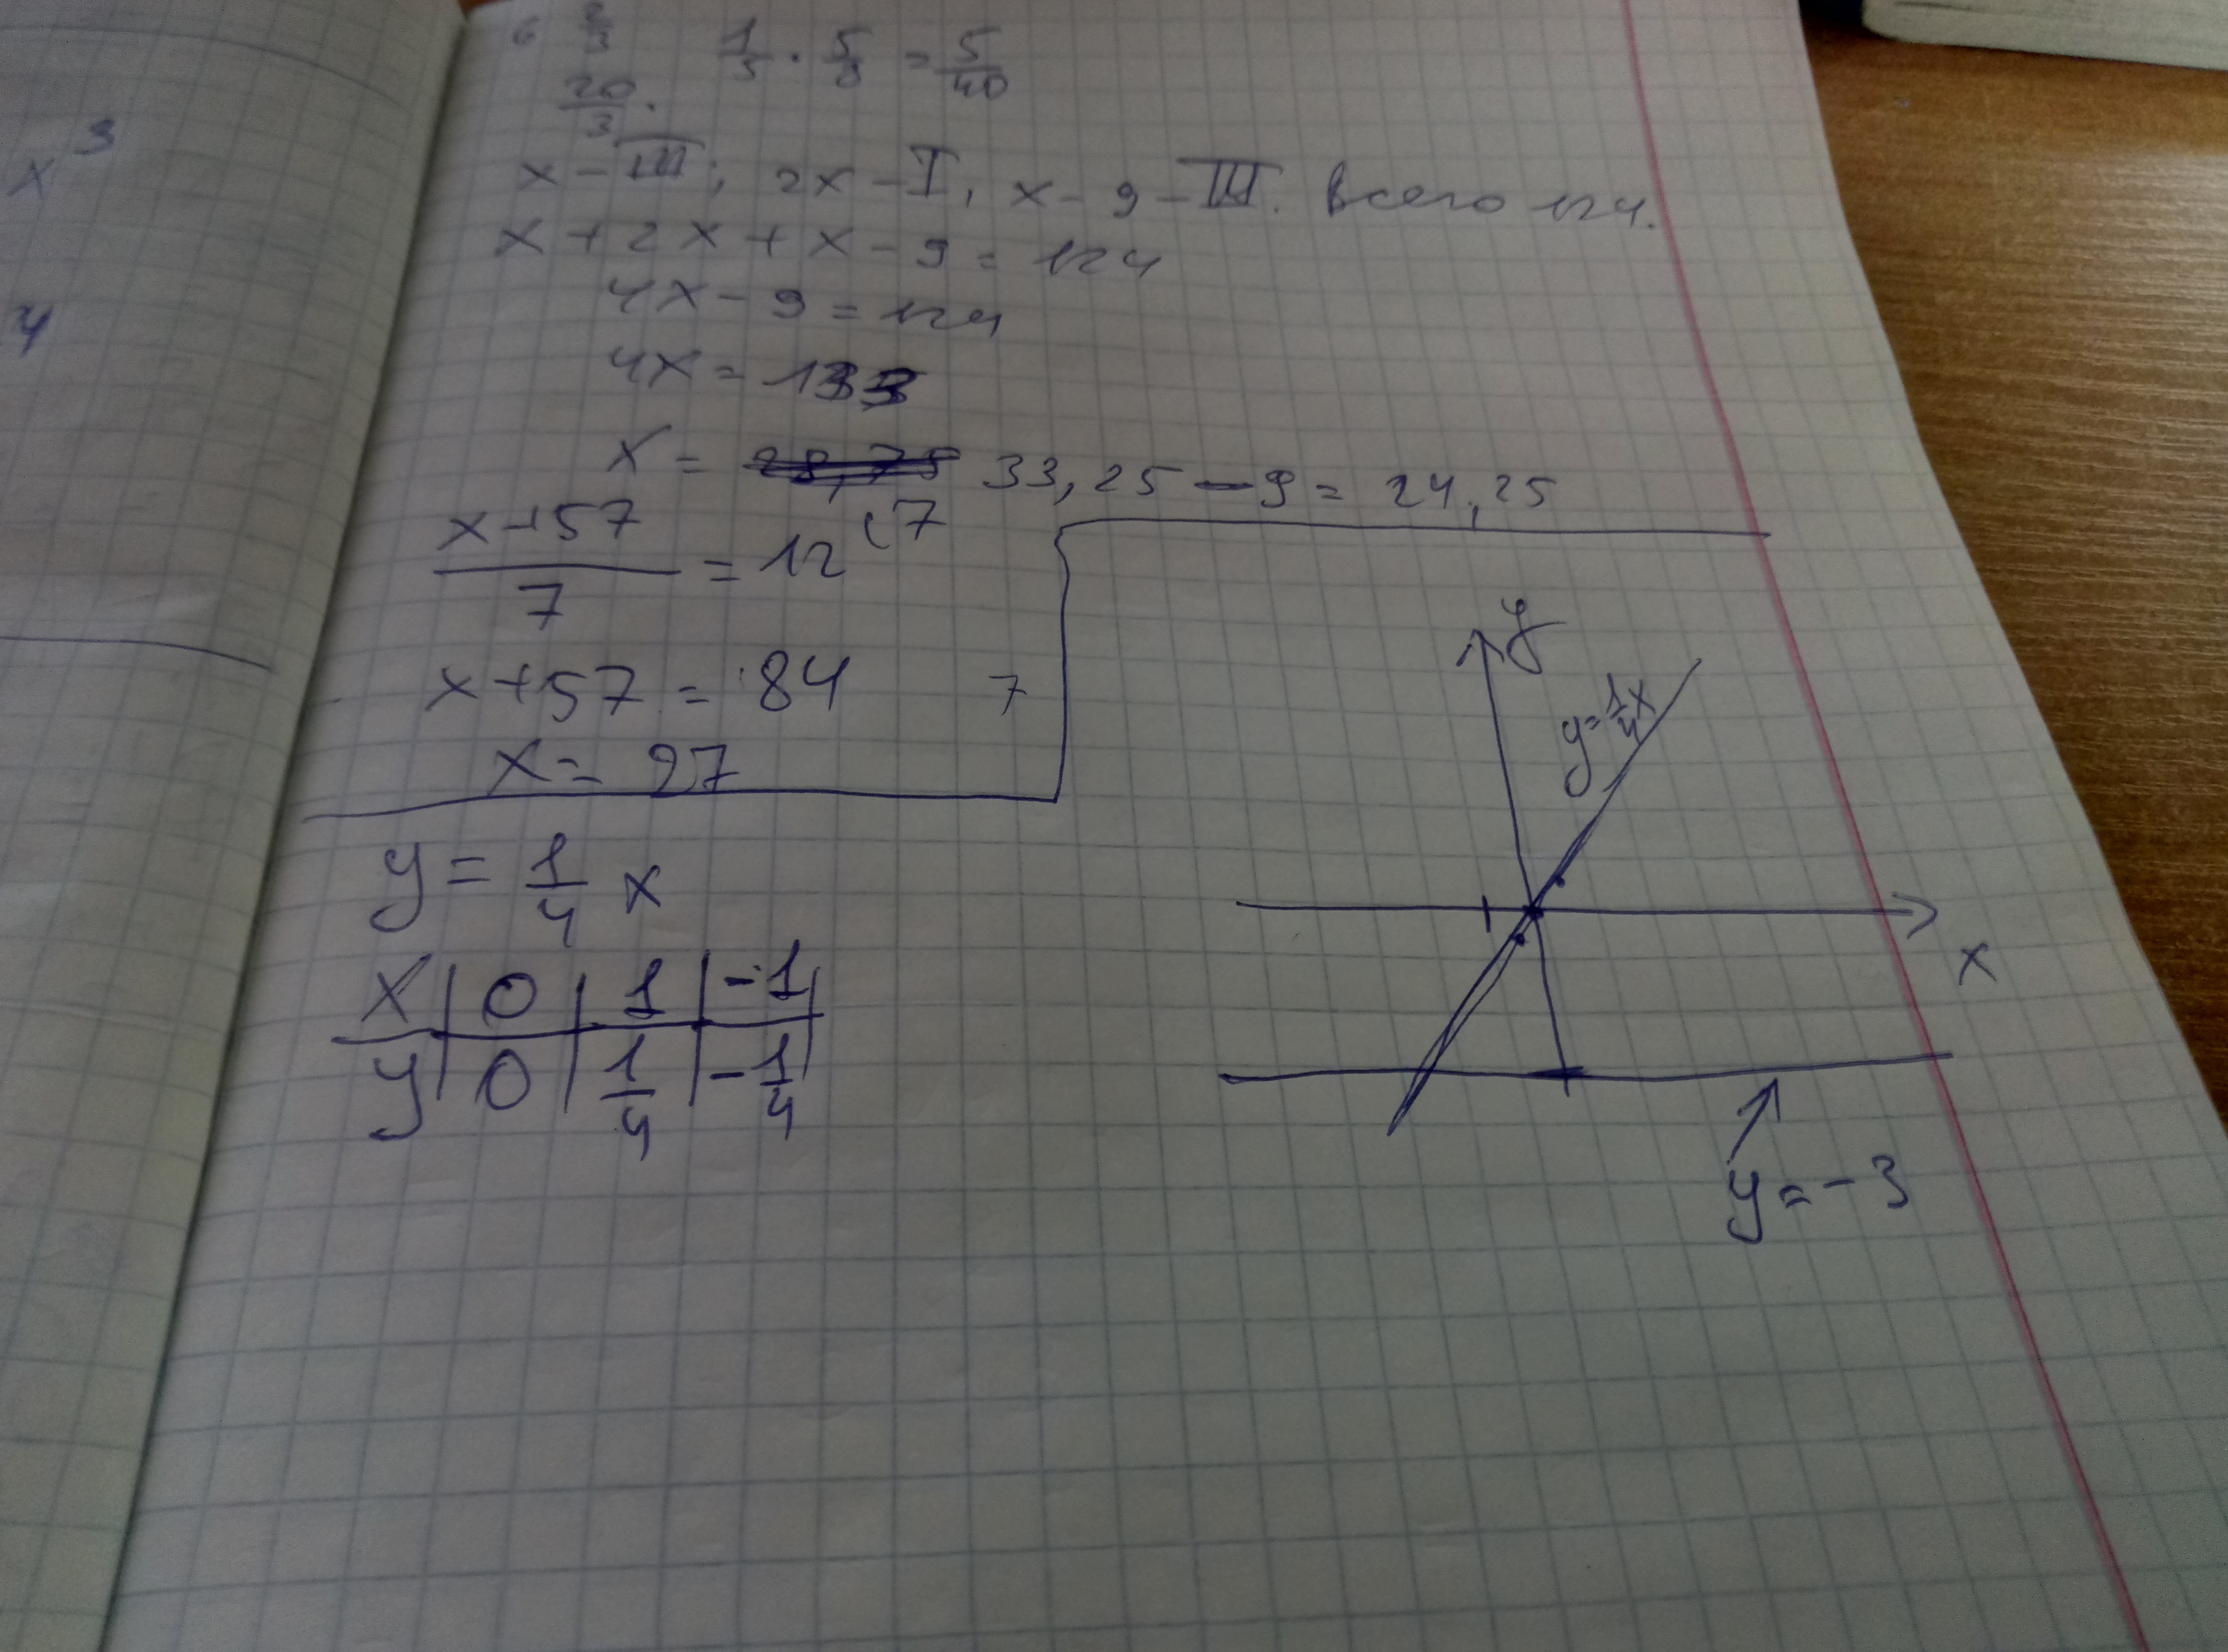 x³
4
6 2/3    1/5 · 5/8 = 5/40
20/3 ·
x – III; 2x – I, x – 9 – III. Всего 124.
x + 2x + x – 9 = 124
4x – 9 = 124
4x = 133
x = 33,25 – 9 = 24,25
(x+57)/7 = 12 (7
x+57 = 84    7
x = 27
y = 1/4 x
x | 0 | 1 | -1 |
y | 0 | 1/4 | -1/4
y
y = 1/4 x
x
y = -3